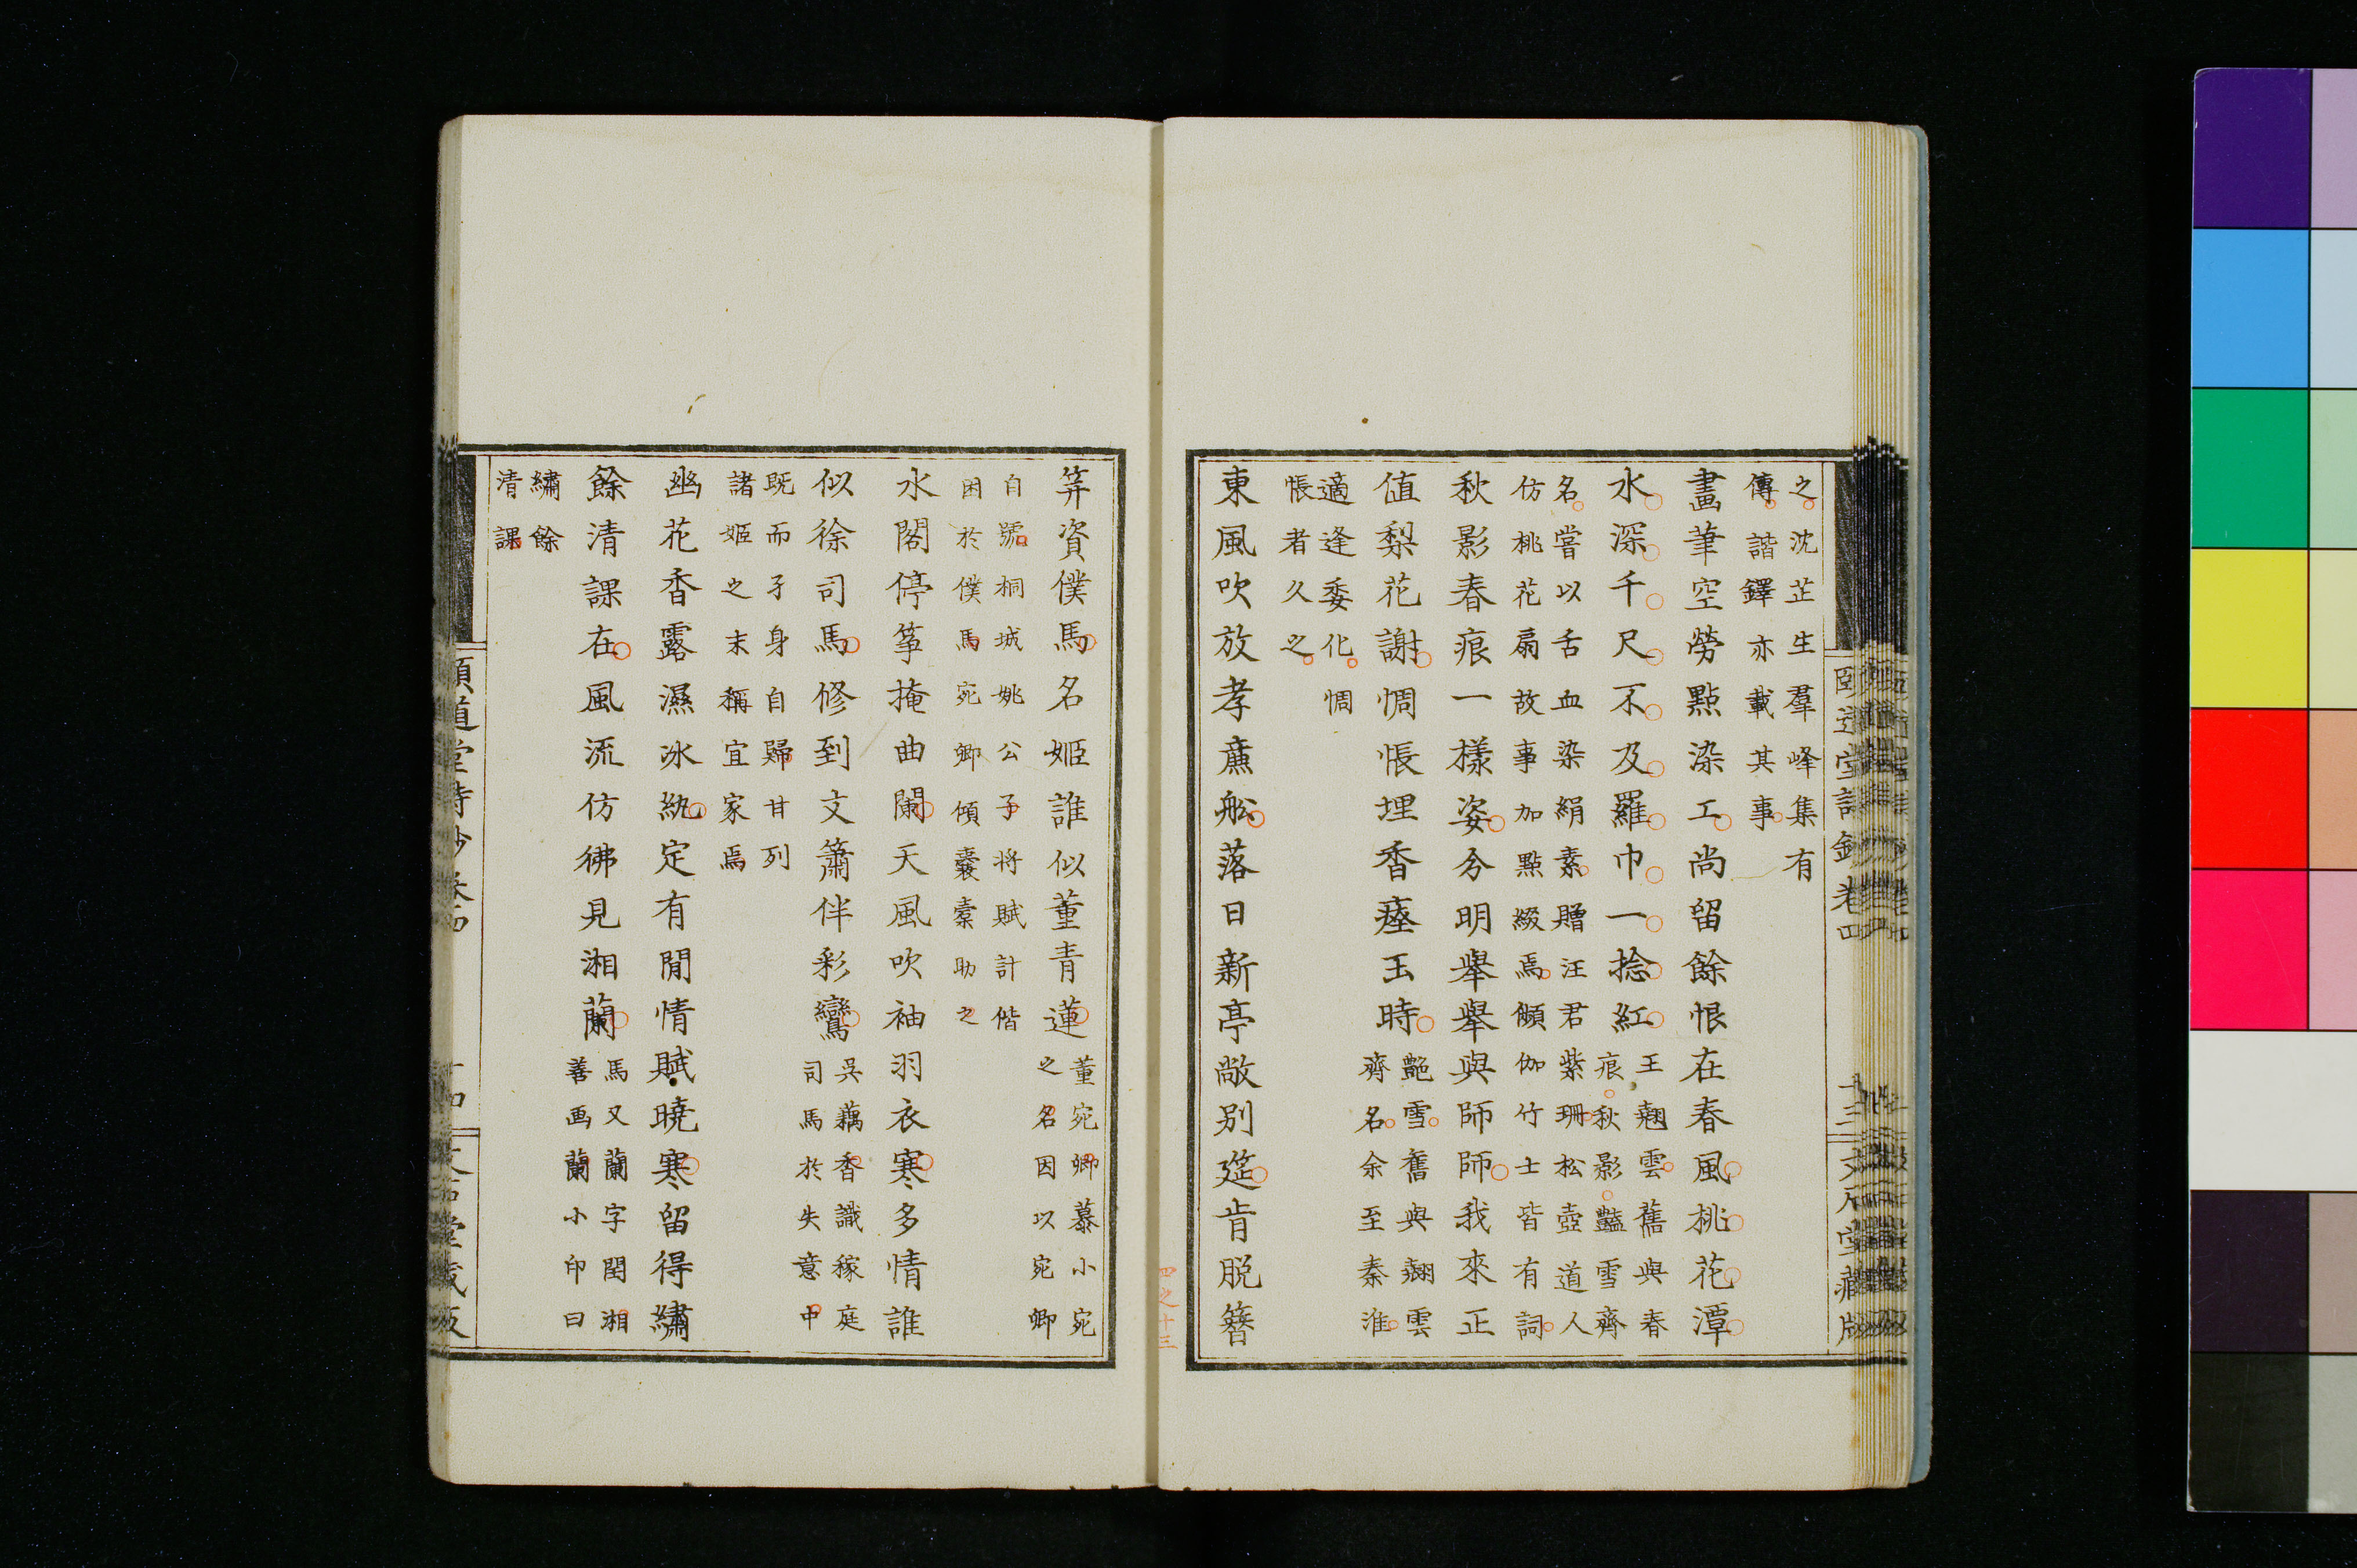 之沈芷生羣峰集有
傳諧鐸亦載其事
畫筆空勞點染工尚留餘恨在春風桃花潭
水深千尺不及羅巾一捻紅
王翹雲舊與春
痕秋影豔雪齊
名嘗以舌血染絹素贈汪君紫珊松壺道人
仿桃花扇故事加點綴焉頻伽竹士皆有詞
秋影春痕一樣姿分明舉舉與師師我來正
值梨花謝惆悵埋香瘞玉時
艷雪舊與翹雲
齊名余至秦淮
適逢委化惆
悵者久之
東風吹放孝廉船落日新亭敞別筵肯脫簪
頤道堂詩鈔卷四
十三
文石堂藏版
四之十三
笄資僕馬名姬誰似董青蓮
董宛卿慕小宛
之名因以宛卿
自號桐城姚公子將賦計偕
困於僕馬宛卿傾囊橐助之
水閣停箏掩曲闌天風吹袖羽衣寒多情誰
似徐司馬修到文簫伴彩鸞
吳藕香識稼庭
司馬於失意中
既而孑身自歸甘列
諸姬之末稱宜家焉
幽花香露濕冰紈定有閒情賦曉寒留得繡
餘清課在風流仿彿見湘蘭
馬又蘭字閏湘
善画蘭小印曰
繡餘
清課
頤道堂詩鈔卷四
十四
文石堂藏版